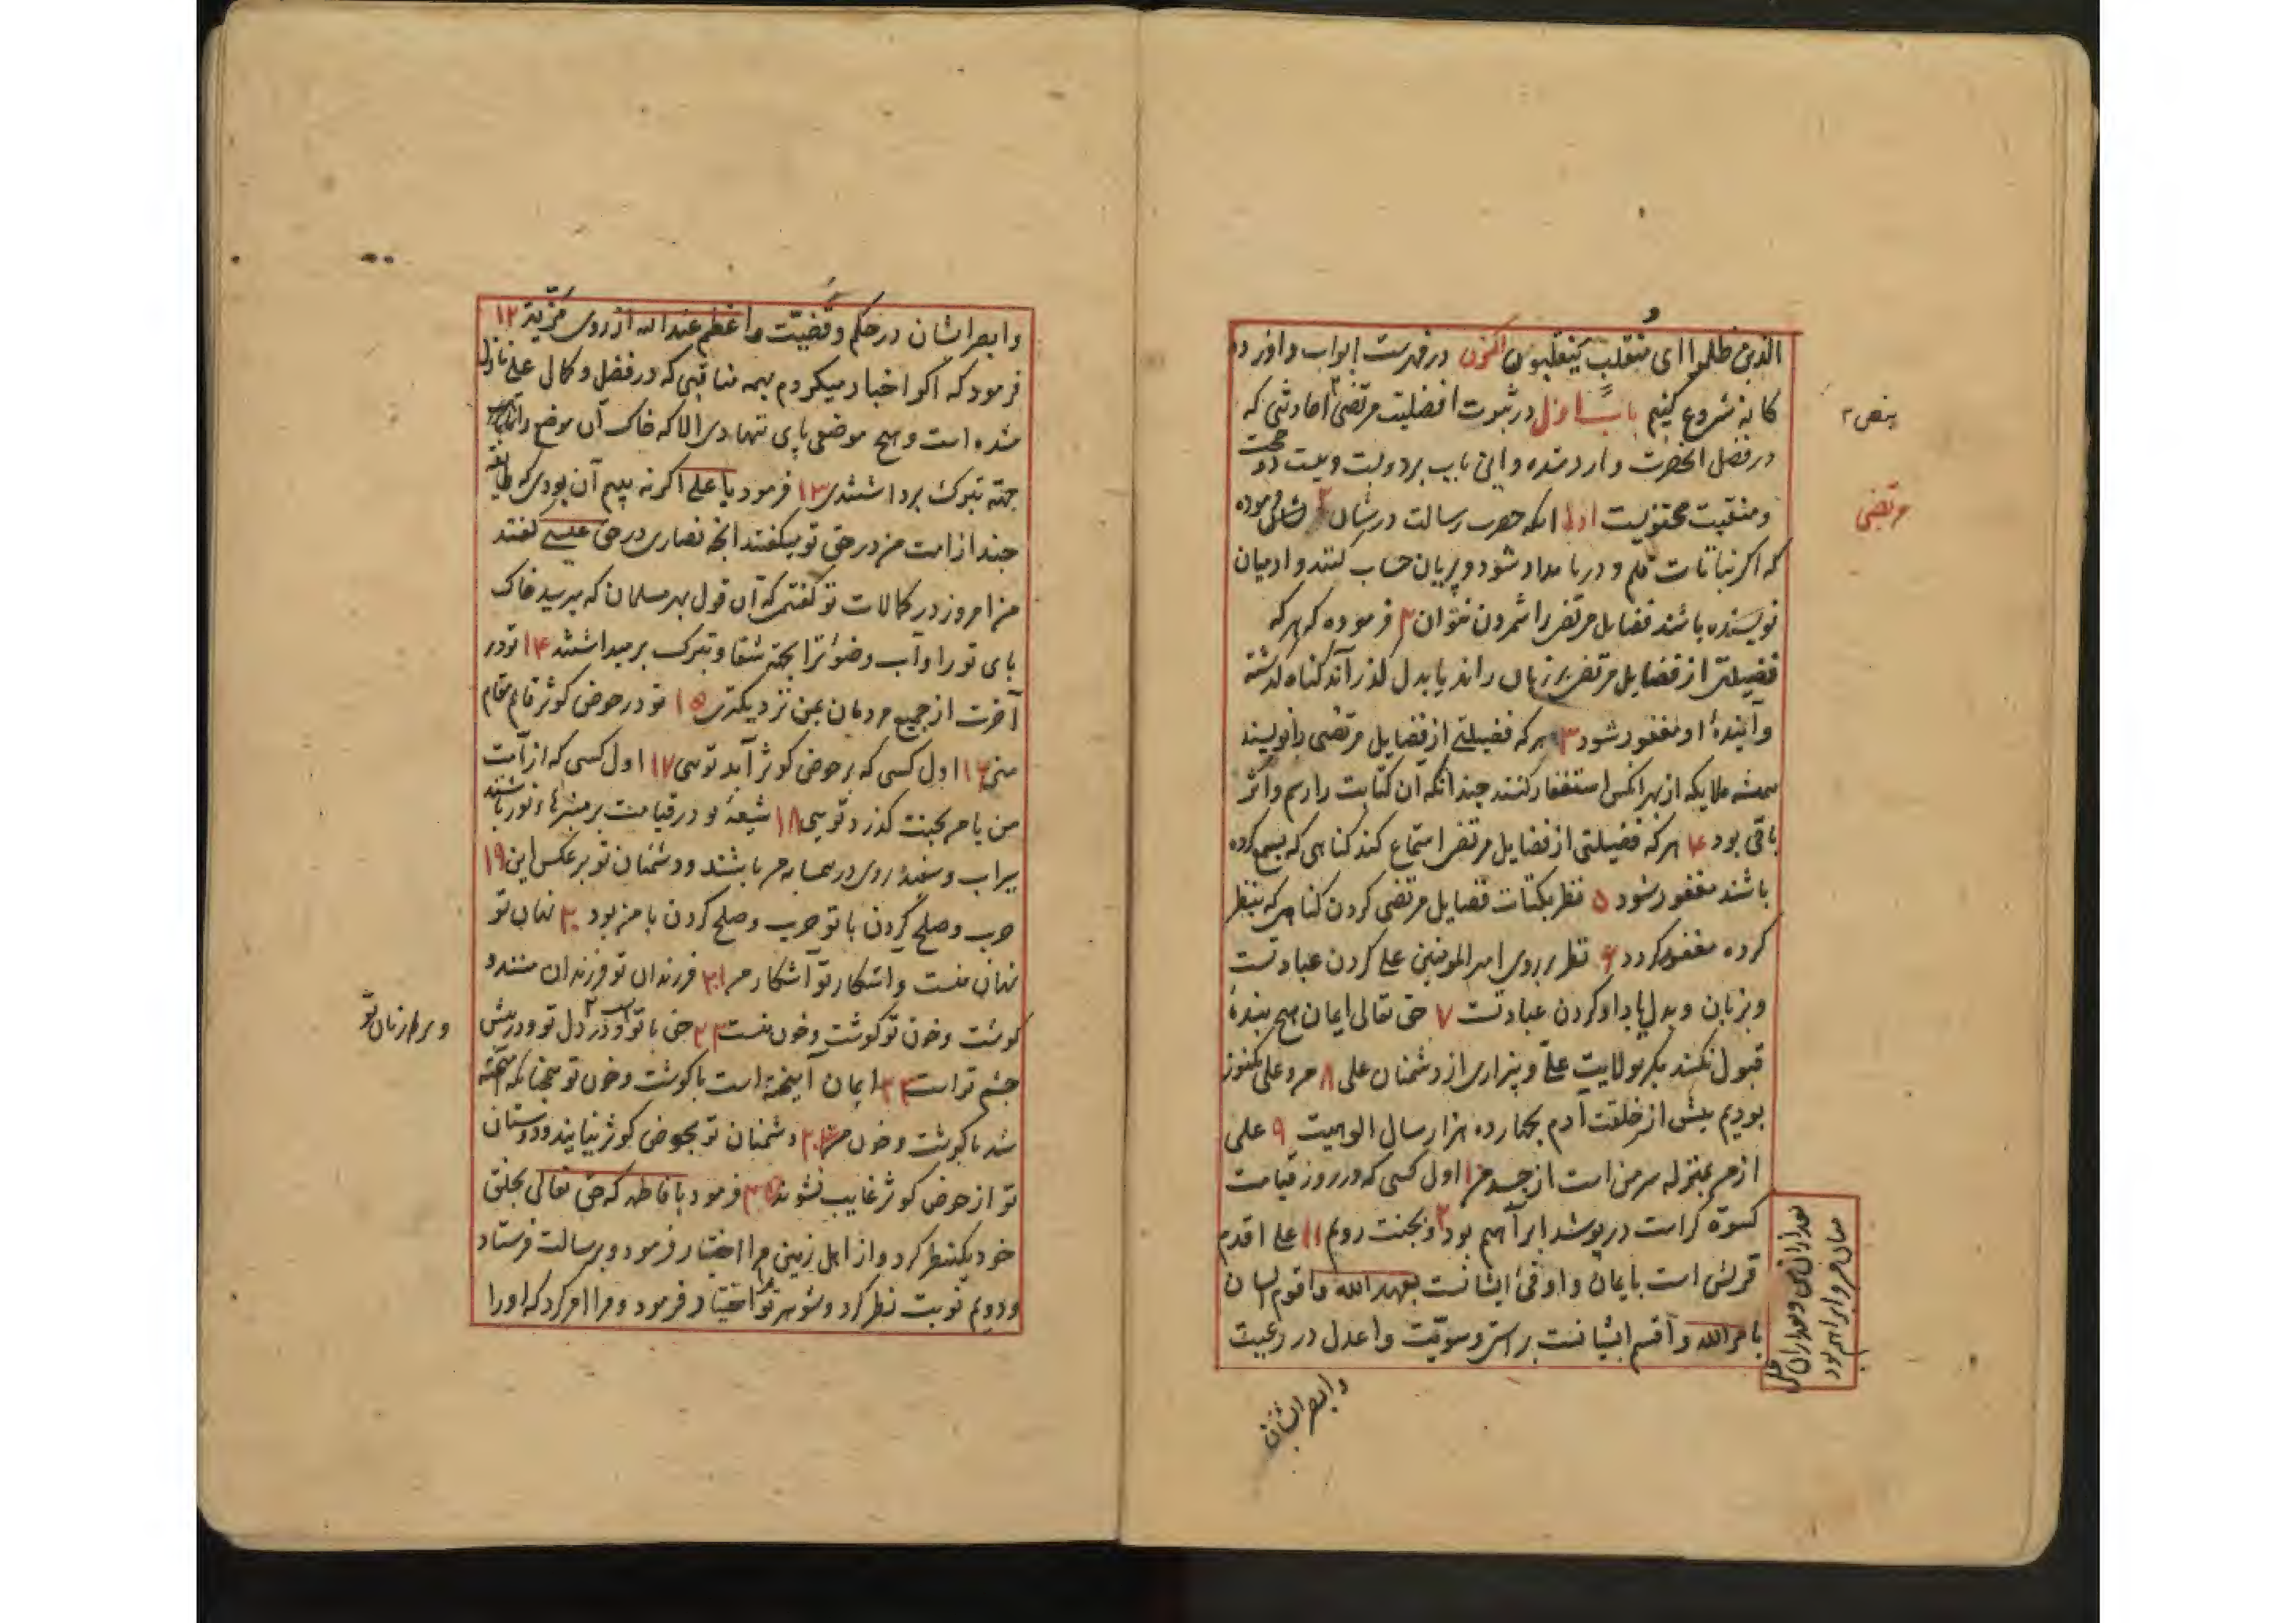 الذین ظلموا ای منقلب ینقلبون اکنون در فهرست ابواب و اوراد ده
کانه شروع کنیم باب اول در ثبوت افضلیت مرتضی احادثی که
در فضل انحضرت وارد شده و این باب بر دویست و بیست دو حجت
و منقبت محتویست اول انکه حضرت رسالت در شان فرموده
که اکر نباتات قلم و دریا مداد شود و پریان حساب کنند و ادمیان
نویسنده باشند فضایل مرتضی را شمردن نتوان ۲ فرموده که هر که
فضیلتی از فضایل مرتضی بر زبان راند یا بدل کذراند کناه کذشته
و آیندهٔ او مغفور شود ۳ هر که فضیلتی از فضایل مرتضی را نویسند
همیشه ملایکه از بهر انکس استغفار کنند چندانکه آن کتابت را رسم و اثر
باقی بود ۴ هر که فضیلتی از فضایل مرتضی استماع کند کناهی که بسمع کرده
باشند مغفور شود ۵ نظر بکتات فضایل مرتضی کردن کناهی که بنظر
کرده مغفور کردد ۶ نظر بر روی امیر المومنین علی کردن عبادتست
و بزبان و بدل یاد او کردن عبادتست ۷ حق تعالی ایمان هیچ بندهٔ
قبول نکند مکر بولایت علی و بیزاری از دشمنان علی ۸ من و علی کنوز
بودیم پیش از خلقت آدم بچهارده هزار سال الوهیت ۹ علی
از من بمنزله سر من است از جسد من ۱۰ اول کسی که در روز قیامت
کسوهٔ کرامت در پوشد ابراهیم بود و بجنت رویم ۱۱ علی اقدم
قریش است بایمان و اوفیٔ ایشانست بعهد الله و اقوم ایشان
بامر الله و اقسم ایشانست براستی و سویّت و اعدل در رعیت
بنص ۲
مرتضی
میان من و ابراهیم بود
وابصر ایشان
وابصر ایشان در حکم و قضیّت و اعظم عند الله از روی مزّیت ۱۲
فرمود که اکر اخبار میکردم بهمه مناقبی که در فضل و کمال علی نازل
شده است و هیچ موضعی پای ننهادی الا که خاک آن موضع را
جهة تبرک برداشتندی ۱۳ فرمود یا علی اکر نه بیم آن بودی که طایفه
چند از امت من در حق تو میکفتند انچه نصاری در حق عیسی کفتند
من امروز در کمالات تو کفتمی که آن قول بهر مسلمان که برسید خاک
پای تو را و آب وضؤ ترا بجهة شفا و تبرک برمیداشتند ۱۴ تو در
آخرت از جمیع مردمان بمن نزدیکتری ۱۵ تو در حوض کوثر قایم مقام
منی ۱۶ اول کسی که بر حوض کوثر آید تویی ۱۷ اول کسی که از امت
من با من بجنت کذرد تویی ۱۸ شیعهٔ تو در قیامت بر منبرهاء نور باشند
سیراب و سفید روی در همسایه من باشند و دشمنان تو بر عکس این ۱۹
حرب و صلح کردن با تو حرب و صلح کردن با من بود ۲۰ نهان تو
نهان منست و اشکار تو آشکار من ۲۱ فرزندان تو فرزندان منند و
کوشت و خون تو کوشت و خون منست ۲۲ حق با تو است و در دل تو و در پیش
چشم تو است ۲۳ ایمان آمیخته است با کوشت و خون تو همچنانکه آمیخته
شد با کوشت و خون من ۲۴ دشمنان تو بحوض کوثر نیایند و دوستان
تو از حوض کوثر غایب نشوند ۲۵ فرمود با فاطمه که حق تعالی بخلق
خود یکنظر کرد و از اهل زمین مرا اختیار فرمود و برسالت فرستاد
و دویم نوبت نظر کرد و شوهر ترا اختیار فرمود و مرا امر کرد که او را
و بر زبان تو